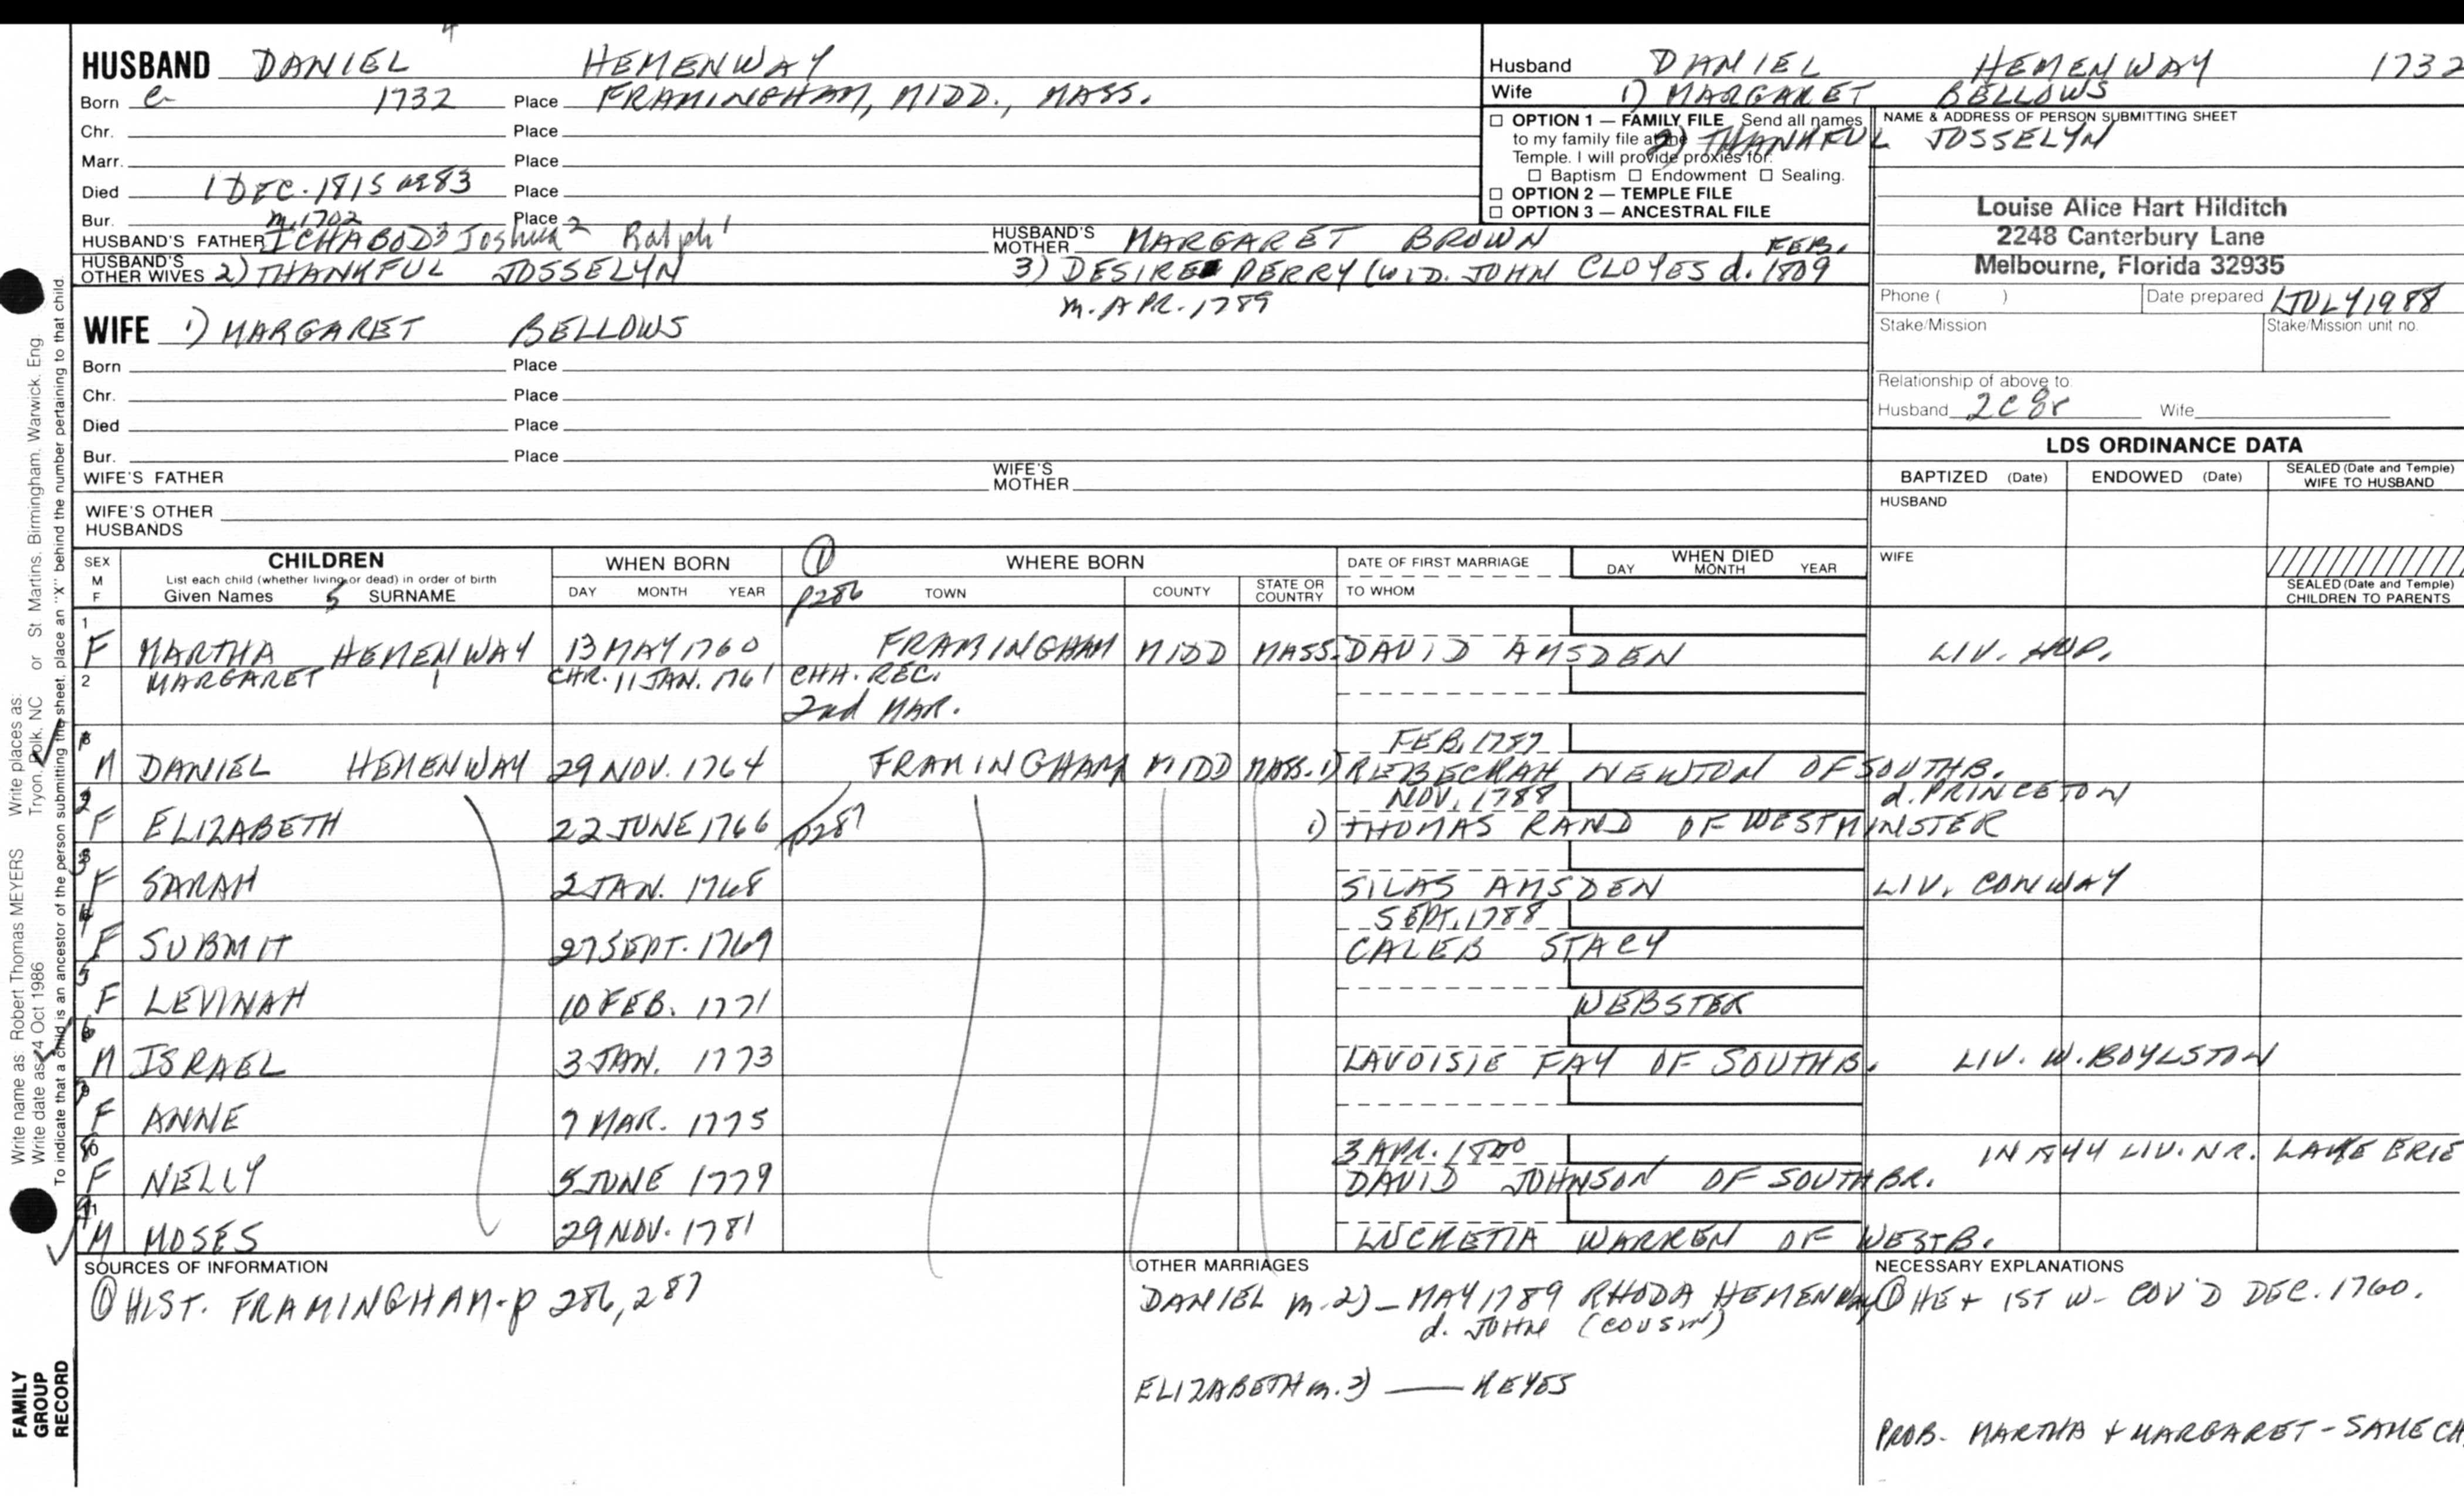 4
HUSBAND DANIEL HEMENWAY
Born c 1732 Place FRAMINGHAM, MIDD., MASS.
Chr. Place
Marr. Place
Died 1 DEC. 1815 ae 83 Place
Bur. Place
m. 1702
HUSBAND'S FATHER ICHABOD3 Joshua2 Ralph1 HUSBAND'S MOTHER MARGARET BROWN
HUSBAND'S OTHER WIVES 2) THANKFUL JOSSELYN 3) DESIRE PERRY (WID. JOHN CLOYES d. FEB. 1809
m. APR. 1789
WIFE 1) MARGARET BELLOWS
Born Place
Chr. Place
Died Place
Bur. Place
WIFE'S FATHER WIFE'S MOTHER
WIFE'S OTHER HUSBANDS
Husband DANIEL HEMENWAY 1732
Wife 1) MARGARET BELLOWS
2) THANKFUL JOSSELYN
OPTION 1 — FAMILY FILE Send all names
to my family file at the
Temple. I will provide proxies for:
Baptism Endowment Sealing.
OPTION 2 — TEMPLE FILE
OPTION 3 — ANCESTRAL FILE
NAME & ADDRESS OF PERSON SUBMITTING SHEET
Louise Alice Hart Hilditch
2248 Canterbury Lane
Melbourne, Florida 32935
Phone ( ) Date prepared 1 JULY 1988
Stake/Mission Stake/Mission unit no.
Relationship of above to
Husband 2C8r Wife
LDS ORDINANCE DATA
BAPTIZED (Date) ENDOWED (Date) SEALED (Date and Temple) WIFE TO HUSBAND
HUSBAND
WIFE
SEALED (Date and Temple) CHILDREN TO PARENTS
SEX M F CHILDREN WHEN BORN 1 WHERE BORN DATE OF FIRST MARRIAGE WHEN DIED
List each child (whether living or dead) in order of birth DAY MONTH YEAR
Given Names 5 SURNAME DAY MONTH YEAR p286 TOWN COUNTY STATE OR COUNTRY TO WHOM
1 F MARTHA HEMENWAY 13 MAY 1760 FRAMINGHAM MIDD MASS. DAVID AMSDEN LIV. HUB.
2 MARGARET CHR. 11 JAN. 1761 CHH. REC.
2nd MAR.
FEB. 1787
M DANIEL HEMENWAY 29 NOV. 1764 FRAMINGHAM MIDD MASS. 1) REBECKAH NEWTON OF SOUTHB.
2 NOV. 1788 d. PRINCETON
F ELIZABETH 22 JUNE 1766 p287 1) THOMAS RAND OF WESTMINSTER
3 F SARAH 2 JAN. 1768 SILAS AMSDEN LIV. CONWAY
4 SEPT. 1788
F SUBMIT 27 SEPT. 1769 CALEB STACY
5 F LEVINAH 10 FEB. 1771 WEBSTER
6 M ISRAEL 3 JAN. 1773 LAVOISIE FAY OF SOUTHB. LIV. W. BOYLSTON
7 F ANNE 7 MAR. 1775
3 APR. 1800 IN 1844 LIV. NR. LAKE ERIE
F NELLY 5 JUNE 1779 DAVID JOHNSON OF SOUTHBR.
M MOSES 29 NOV. 1781 LUCRETIA WARREN OF WESTB.
SOURCES OF INFORMATION
1 HIST. FRAMINGHAM - p 286, 287
OTHER MARRIAGES
DANIEL m. 2) — MAY 1789 RHODA HEMENWAY
d. JOHN (COUSIN)
ELIZABETH m. 2) — KEYES
NECESSARY EXPLANATIONS
1 HE + 1ST W- COV'D DEC. 1760.
PROB. MARTHA + MARGARET - SAME CH
Write name as: Robert Thomas MEYERS Write places as: Tryon, Polk, NC or St Martins, Birmingham, Warwick, Eng.
Write date as: 4 Oct 1986
To indicate that a child is an ancestor of the person submitting the sheet, place an "X" behind the number pertaining to that child.
FAMILY
GROUP
RECORD